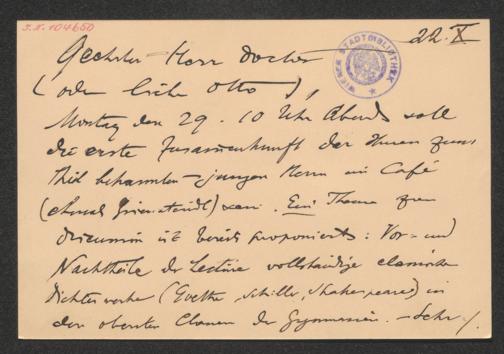 J.N. 104650
22. X
Geehrter Herr Doctor
(oder lieber Otto),
WIENER STADTBIBLIOTHEK
Montag den 29. 10 Uhr Abends soll
die erste Zusammenkunft der Ihnen zum
Theil bekannten jungen Herrn im Café
(ehemals Griensteidl) sein. Ein Thema zur
Discussion ist bereits proponiert: Vor- und
Nachtheile der Lectüre vollständiger classischer
Dichterwerke (Goethe, Schiller, Shakespeare) in
den obersten Classen der Gymnasien. – Sehr